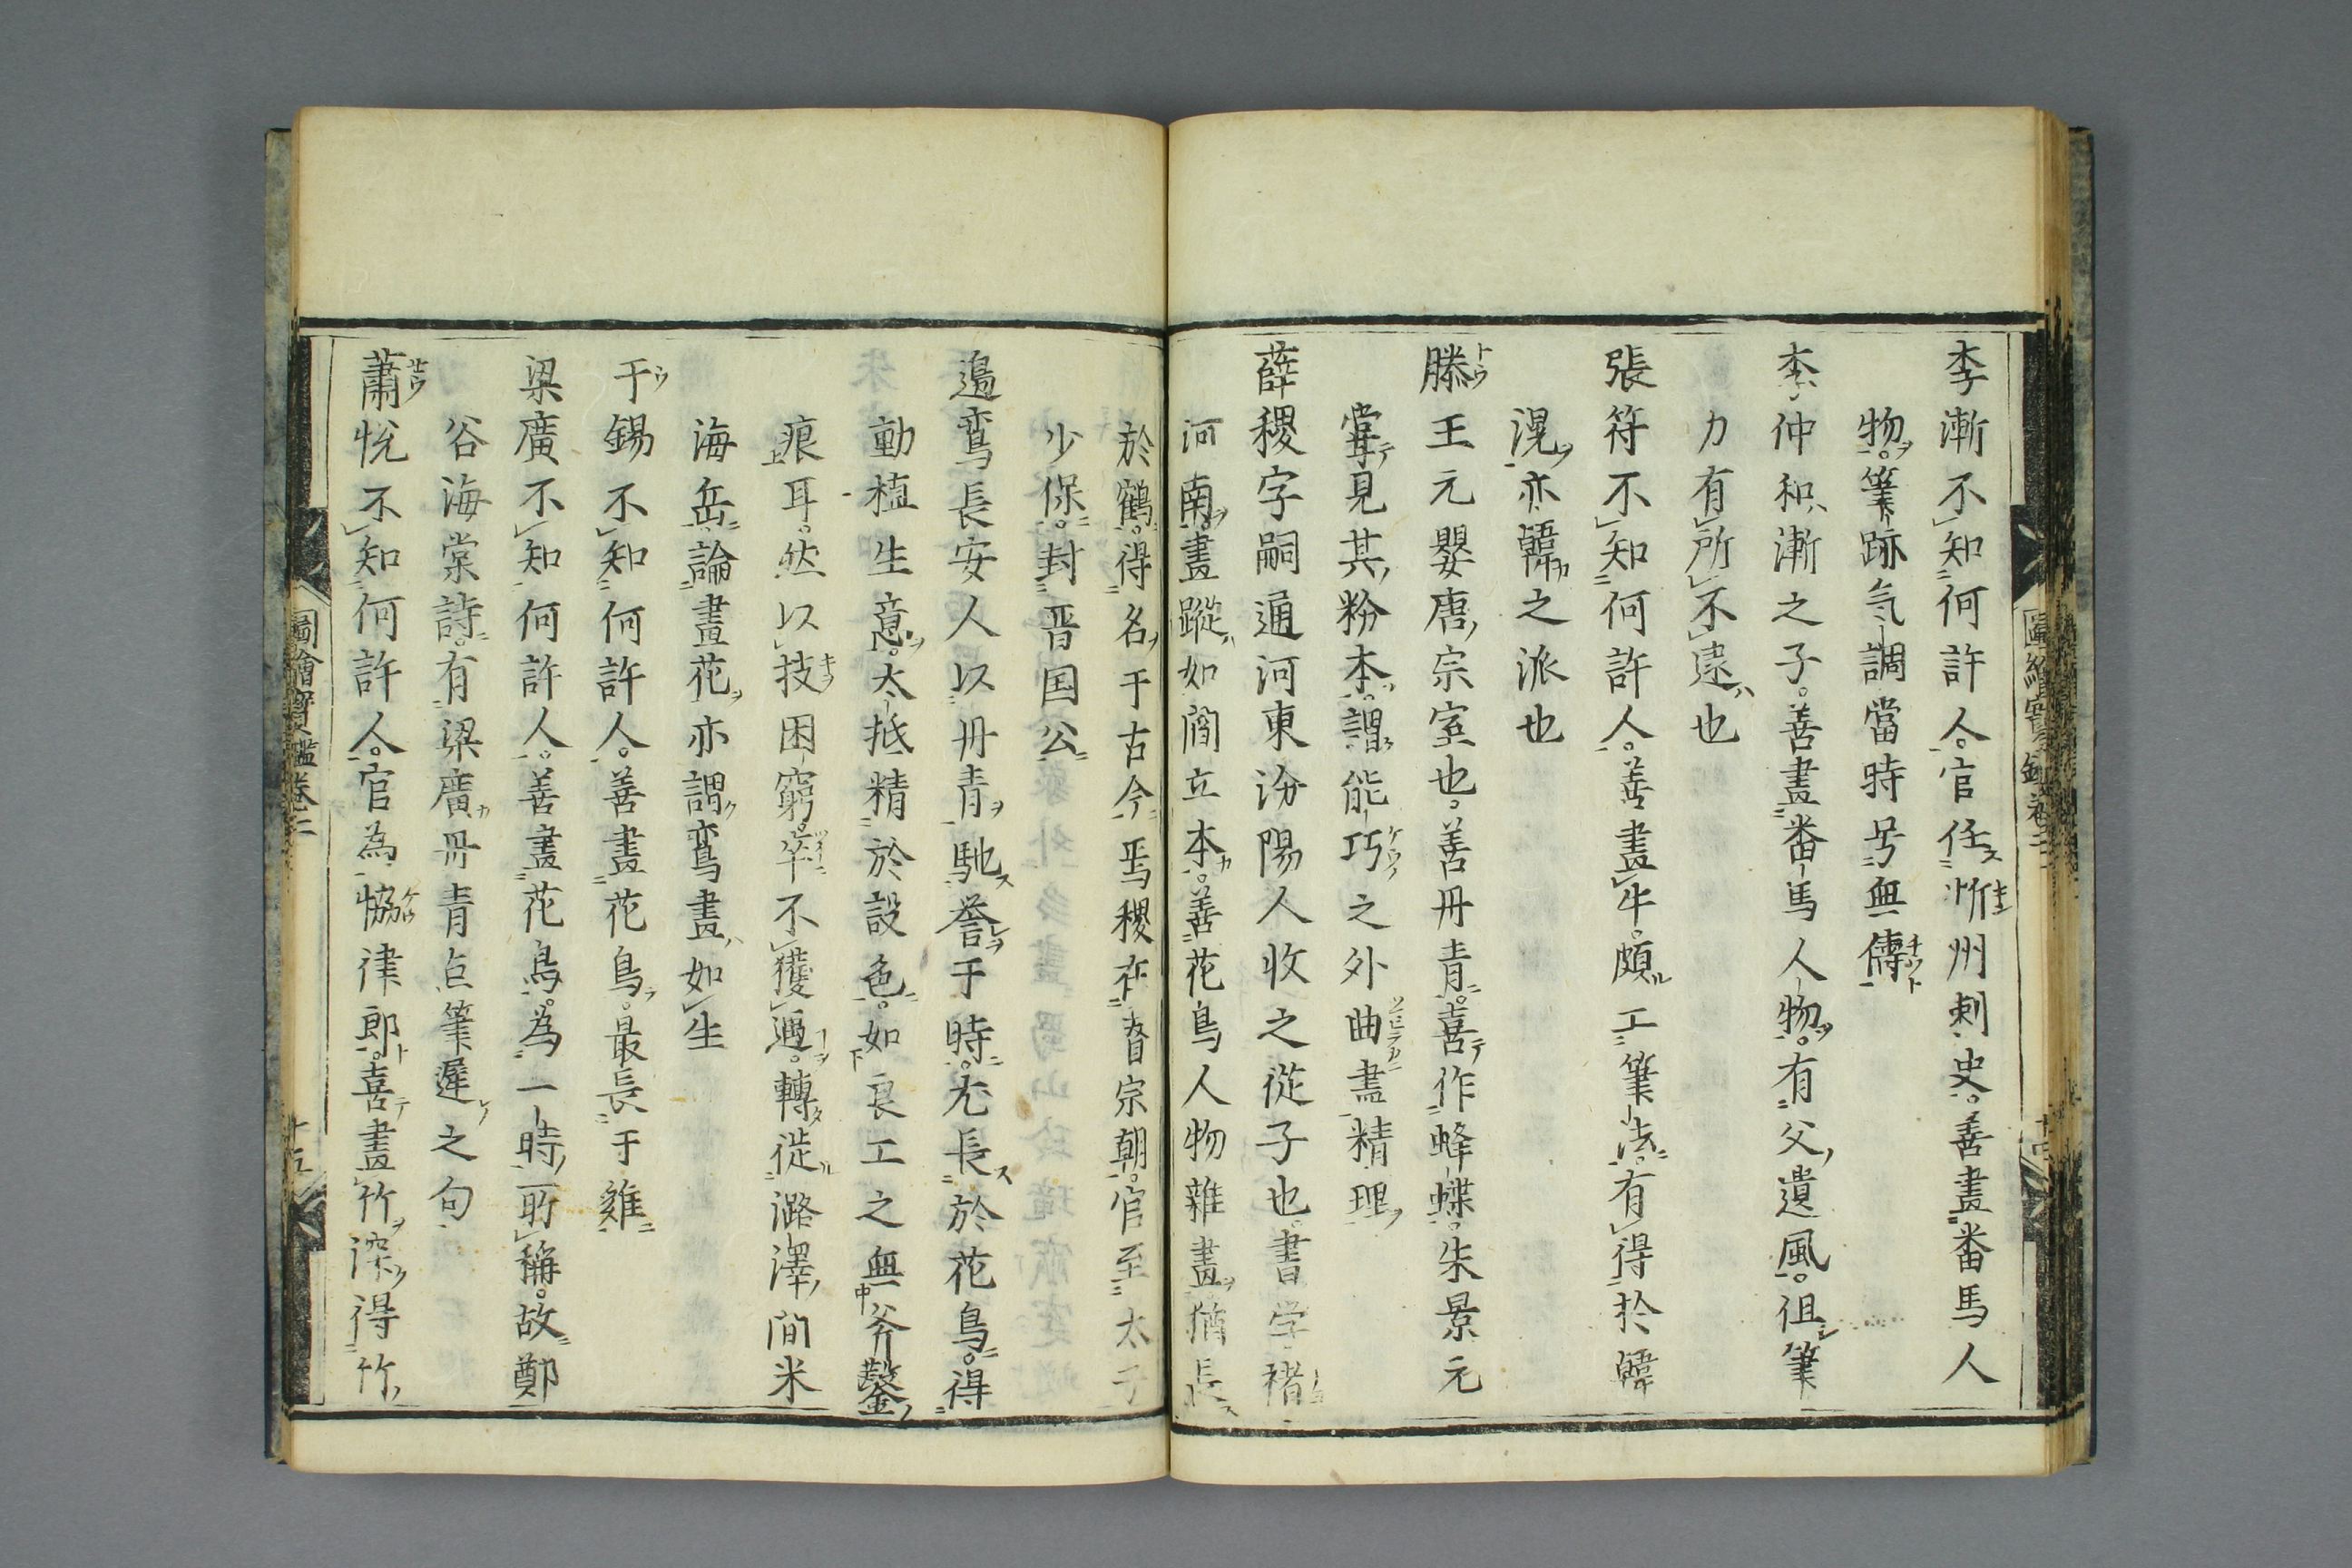 李漸不知何許人官任忻州刺史善畫番馬人
物筆跡气調當時号無儔
李仲和漸之子善畫番馬人物有父遺風徂筆
力有所不逮也
張符不知何許人善畫牛頗工筆法有得於韓
滉亦韓之派也
滕王元嬰唐宗室也善丹青喜作蜂蝶朱景元
嘗見其粉本謂能巧之外曲盡精理
薛稷字嗣通河東汾陽人收之從子也書学褚
河南畫蹤如閻立本善花鳥人物雜畫猶長
於鶴得名于古今焉稷在睿宗朝官至太子
少保封晋国公
邉鸞長安人以丹青馳誉于時尤長於花鳥得
動植生意太抵精於設色如良工之無斧鑿
痕耳然以技困窮卒不獲遇轉徙潞澤間米
海岳論畫花亦謂鸞畫如生
于錫不知何許人善畫花鳥最長于雞
梁廣不知何許人善畫花鳥為一時所稱故鄭
谷海棠詩有梁廣丹青点筆遲之句
蕭悅不知何許人官為恊律郎喜畫竹深得竹
圖繪寳鑑卷二
十五